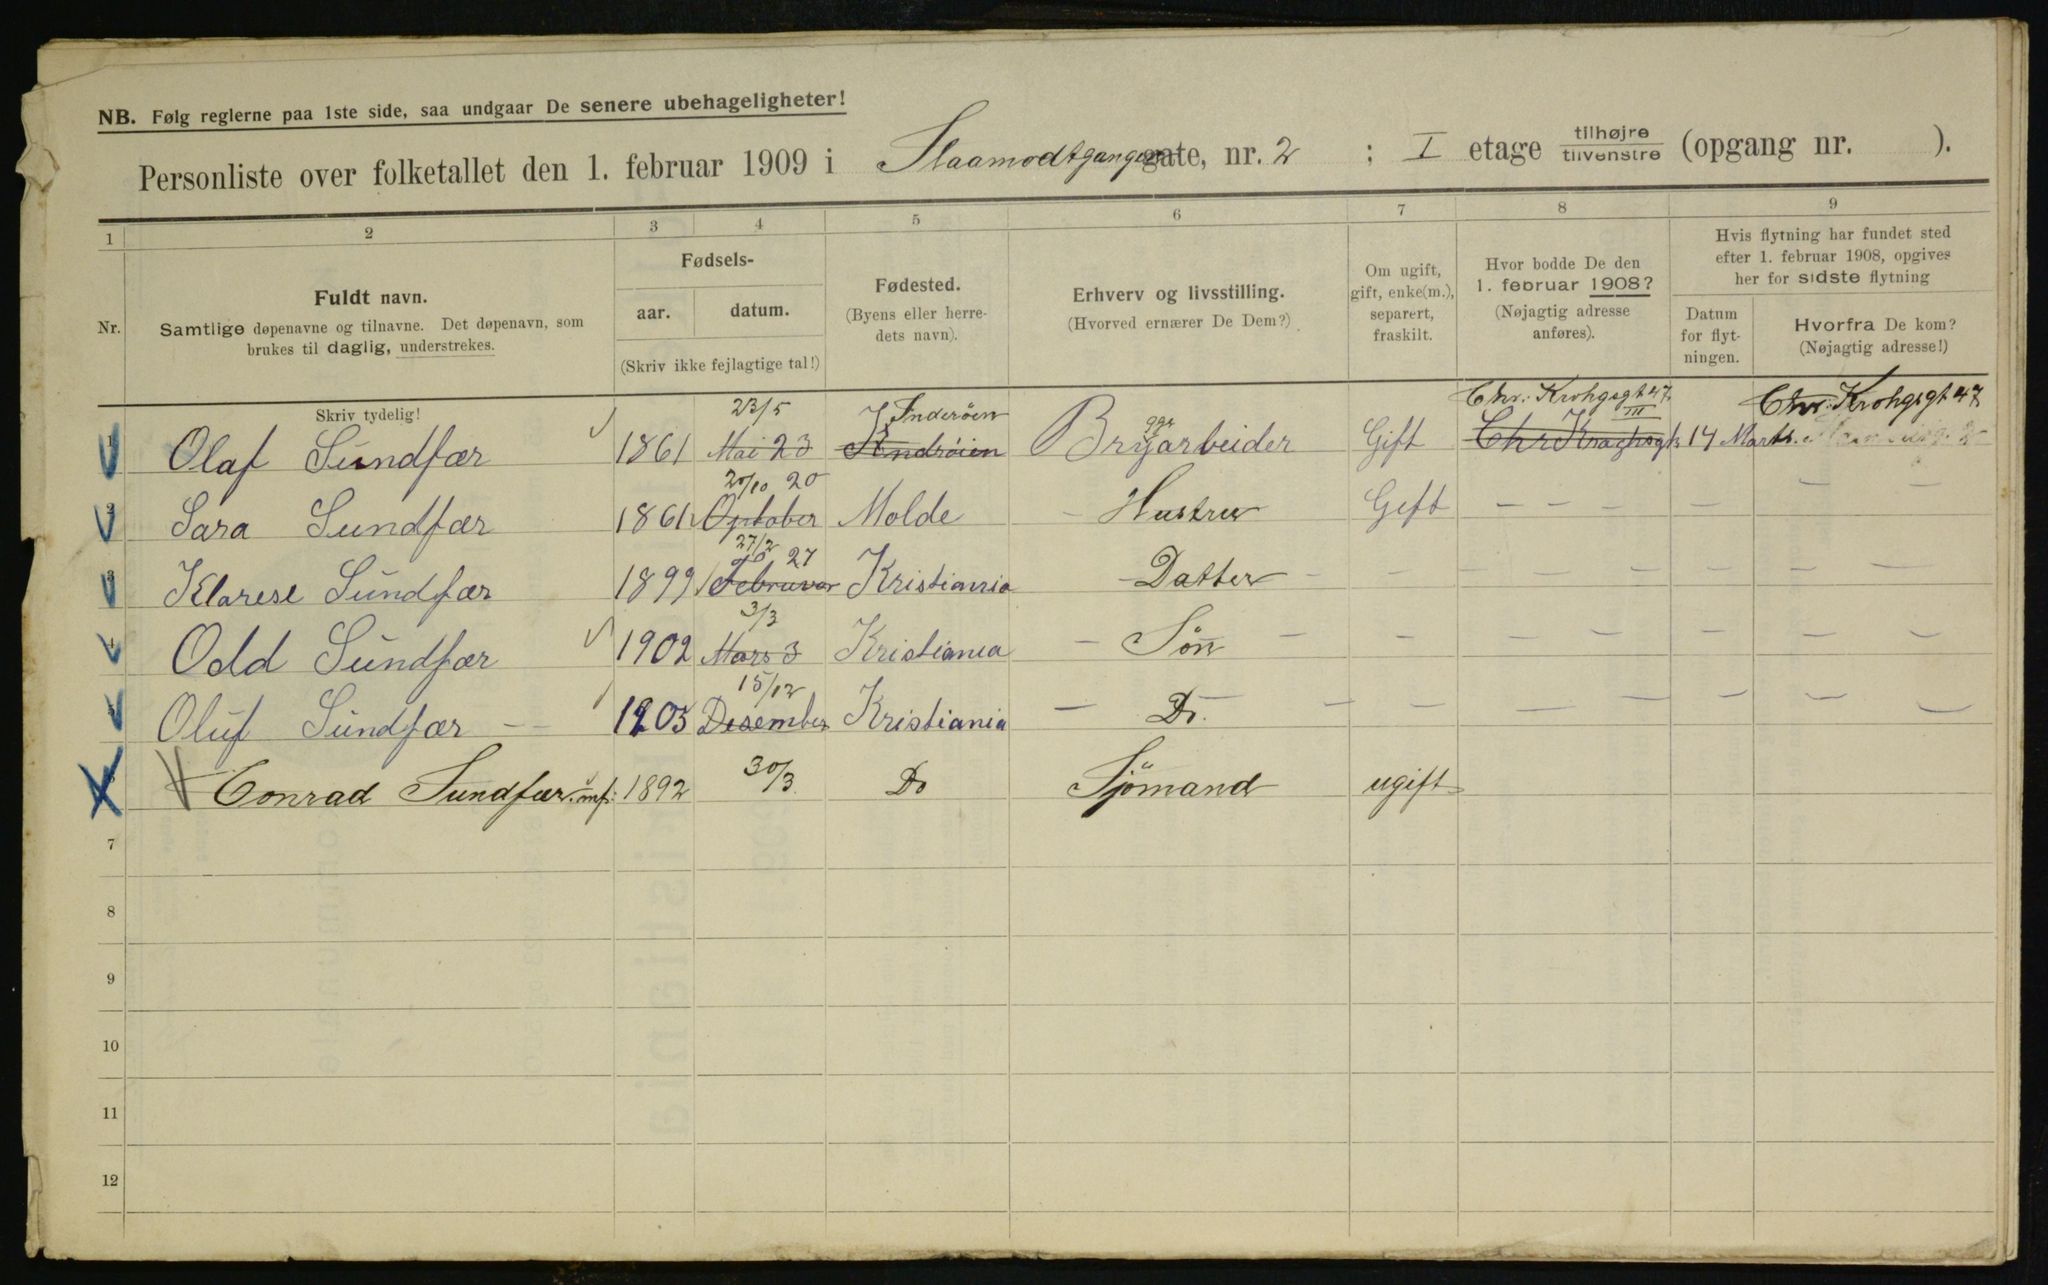 NB. Følg reglerne paa 1ste side, saa undgaar De senere ubehageligheter!
Personliste over folketallet den 1. februar 1909 i Slaamodtgangen gate, nr. 2 ; I etage tilhøjre tilvenstre (opgang nr. ).
1 2 3 4 5 6 7 8 9
Nr.
Fuldt navn.
Samtlige døpenavne og tilnavne. Det døpenavn, som
brukes til daglig, understrekes.
Fødsels-
aar. datum.
(Skriv ikke fejlagtige tal!)
Fødested.
(Byens eller herre-
dets navn).
Erhverv og livsstilling.
(Hvorved ernærer De Dem?)
Om ugift,
gift, enke(m.),
separert,
fraskilt.
Hvor bodde De den
1. februar 1908?
(Nøjagtig adresse
anføres).
Hvis flytning har fundet sted
efter 1. februar 1908, opgives
her for sidste flytning
Datum
for flyt-
ningen.
Hvorfra De kom?
(Nøjagtig adresse!)
Skriv tydelig!
23/5 Inderöen Chr. Krohgsgt 47 III Chr. Krohgsgt 47
1 Olaf Sundfær 1861 Mai 23 Bryggarbeider Gift 14 Marts
20/10 20
2 Sara Sundfær 1861 Oktober Molde - Hustru Gift - - - - - -
27/2 27
3 Klarese Sundfær 1899 Februar Kristiania - Datter - - - - - - - -
3/3
4 Odd Sundfær 1902 Mars 3 Kristiania - Sön - - - - - - - -
15/12
5 Oluf Sundfær - - 1905 Desember Kristiania - Do. - - - - - - -
6 Conrad Sundfær mf: 1892 30/3 Do Sjömand ugift
7
8
9
10
11
12